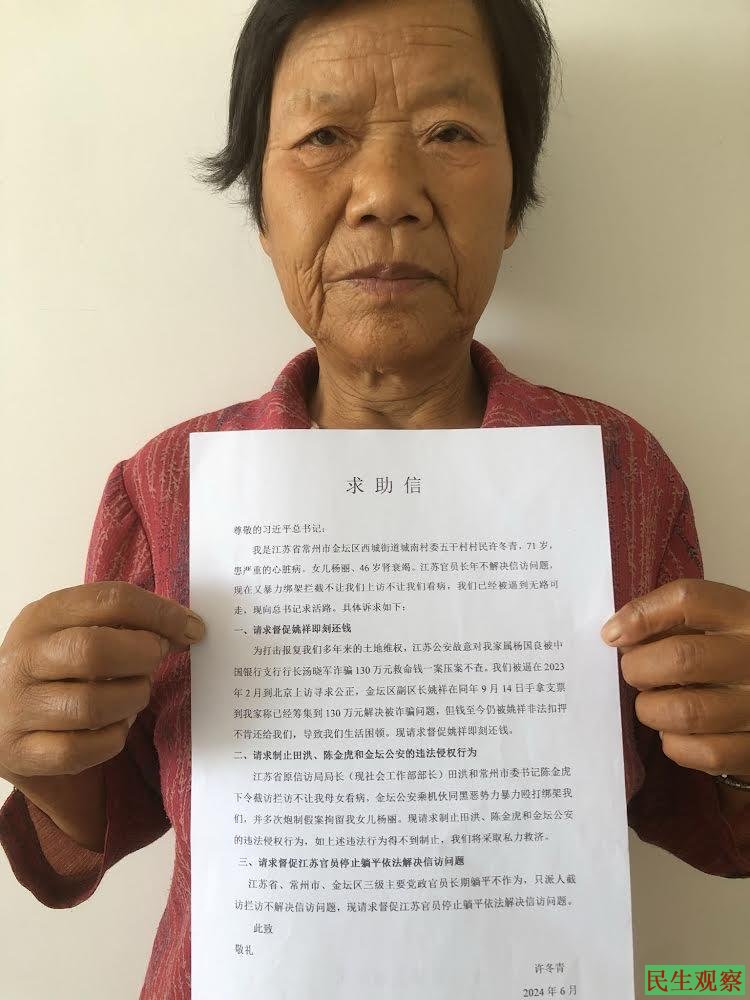 求助信
尊敬的习近平总书记：
我是江苏省常州市金坛区西城街道城南村委五干村村民许冬青，71岁，
患严重的心脏病。女儿杨丽、46岁肾衰竭。江苏官员长年不解决信访问题，
现在又暴力绑架拦截不让我们上访不让我们看病，我们已经被逼到无路可
走，现向总书记求活路。具体诉求如下：
一、请求督促姚祥即刻还钱
为打击报复我们多年来的土地维权，江苏公安故意对我家属杨国良被中
国银行支行行长汤晓军诈骗130万元救命钱一案压案不查。我们被逼在2023
年2月到北京上访寻求公正，金坛区副区长姚祥在同年9月14日手拿支票
到我家称已经筹集到130万元解决被诈骗问题，但钱至今仍被姚祥非法扣押
不肯还给我们，导致我们生活困顿。现请求督促姚祥即刻还钱。
二、请求制止田洪、陈金虎和金坛公安的违法侵权行为
江苏省原信访局局长（现社会工作部部长）田洪和常州市委书记陈金虎
下令截访拦访不让我母女看病，金坛公安乘机伙同黑恶势力暴力殴打绑架我
们，并多次炮制假案拘留我女儿杨丽。现请求制止田洪、陈金虎和金坛公安
的违法侵权行为，如上述违法行为得不到制止，我们将采取私力救济。
三、请求督促江苏官员停止躺平依法解决信访问题
江苏省、常州市、金坛区三级主要党政官员长期躺平不作为，只派人截
访拦访不解决信访问题，现请求督促江苏官员停止躺平依法解决信访问题。
此致
敬礼
许冬青
2024年6月
民生观察